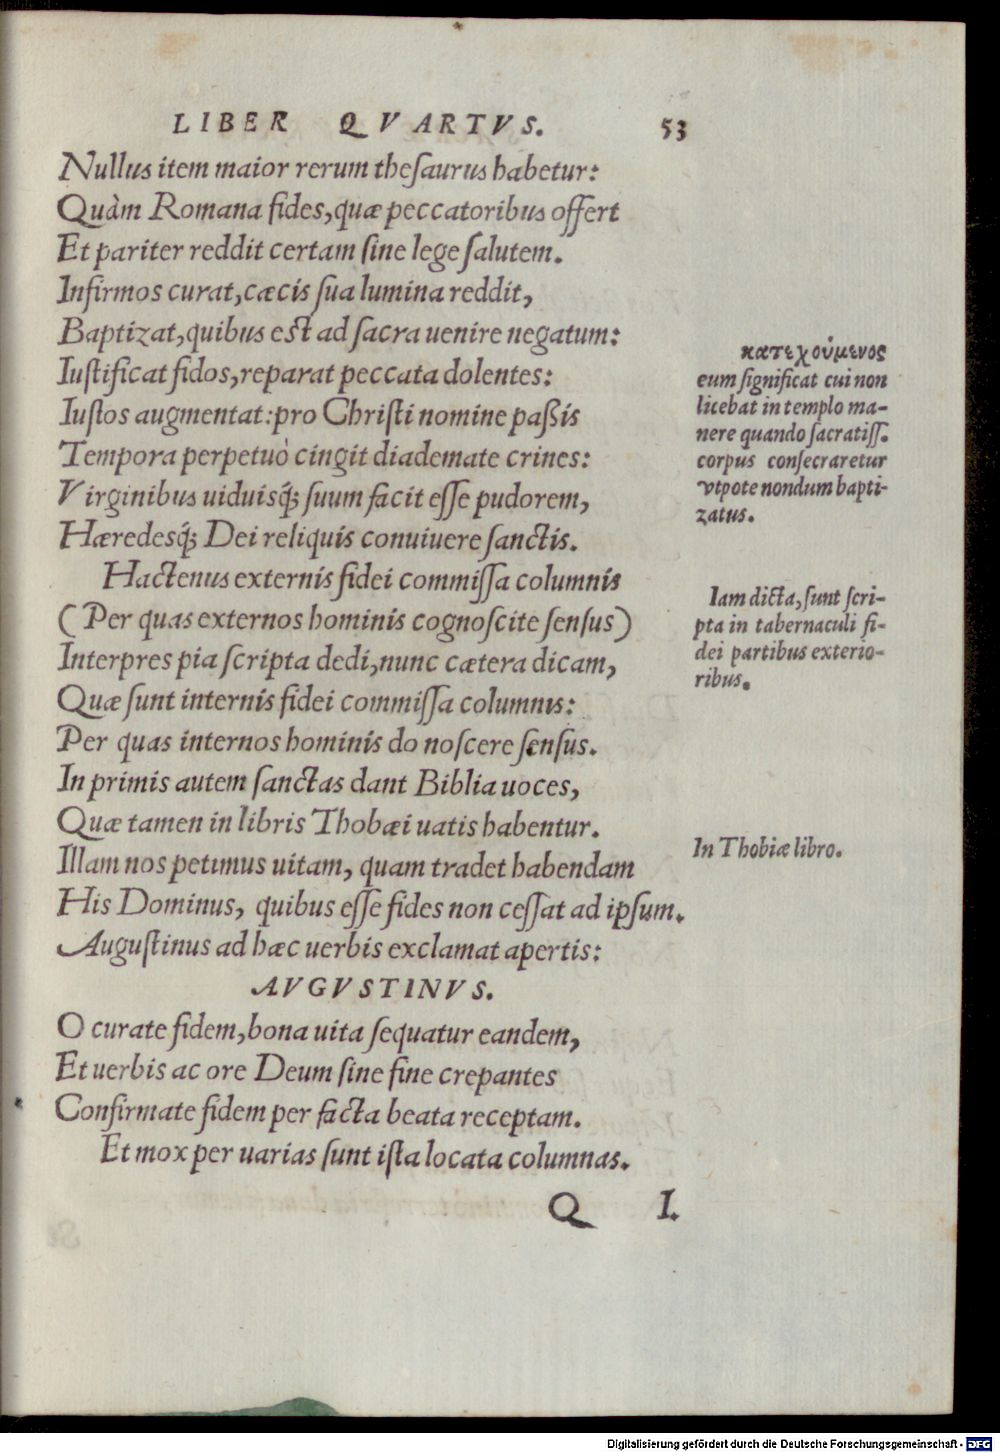 LIBER QVARTVS. 53
Nullus item maior rerum theſaurus habetur:
Quàm Romana fides, quæ peccatoribus offert
Et pariter reddit certam ſine lege ſalutem.
Infirmos curat, cæcis ſua lumina reddit,
Baptizat, quibus eſt ad ſacra uenire negatum:
Iuſtificat fidos, reparat peccata dolentes:
Iuſtos augmentat: pro Chriſti nomine paßis
Tempora perpetuò cingit diademate crines:
Virginibus uiduisq́; ſuum facit eſſe pudorem,
Hæredesq́; Dei reliquis conuiuere ſanctis.
Hactenus externis fidei commiſſa columnis
(Per quas externos hominis cognoſcite ſenſus)
Interpres pia ſcripta dedi, nunc cætera dicam,
Quæ ſunt internis fidei commiſſa columnis:
Per quas internos hominis do noſcere ſenſus.
In primis autem ſanctas dant Biblia uoces,
Quæ tamen in libris Thobæi uatis habentur.
Illam nos petimus uitam, quam tradet habendam
His Dominus, quibus eſſe fides non ceſſat ad ipſum.
Auguſtinus ad hæc uerbis exclamat apertis:
AVGVSTINVS.
O curate fidem, bona uita ſequatur eandem,
Et uerbis ac ore Deum ſine fine crepantes
Confirmate fidem per facta beata receptam.
Et mox per uarias ſunt iſta locata columnas.
Q I.
κατεχούμενος
eum ſignificat cui non
licebat in templo ma-
nere quando ſacratiſſ.
corpus conſecraretur
vtpote nondum bapti-
zatus.
Iam dicta, ſunt ſcri-
pta in tabernaculi fi-
dei partibus exterio-
ribus.
In Thobiæ libro.
Digitalisierung gefördert durch die Deutsche Forschungsgemeinschaft - DFG